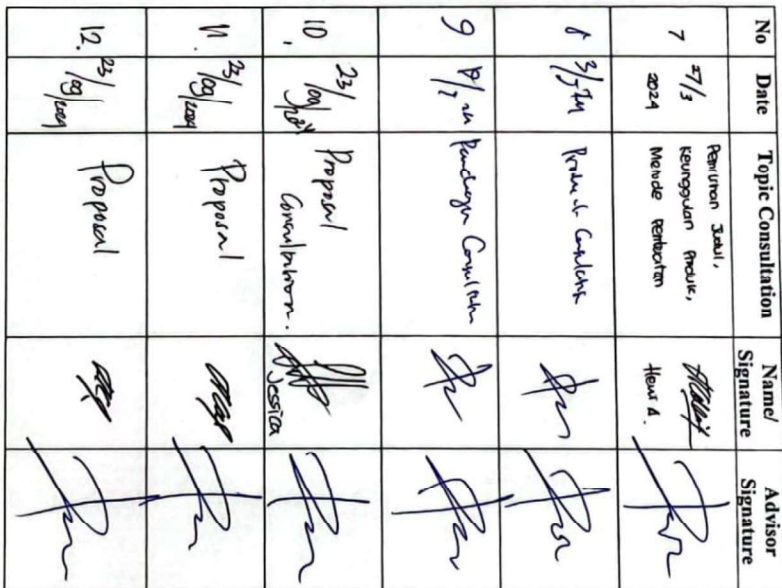 No Date Topic Consultation Name/ Signature Advisor Signature
7 27/3 2024 Pemilihan Judul,
Keunggulan Produk,
Metode Pembuatan
Heni A.
8 3/7 24 Product Consultation
9 8/7 24 Consultation
10, 23/09/2024 Proposal
Consultation.
Jessica
11. 23/09/2024 Proposal
12. 23/09/2024 Proposal